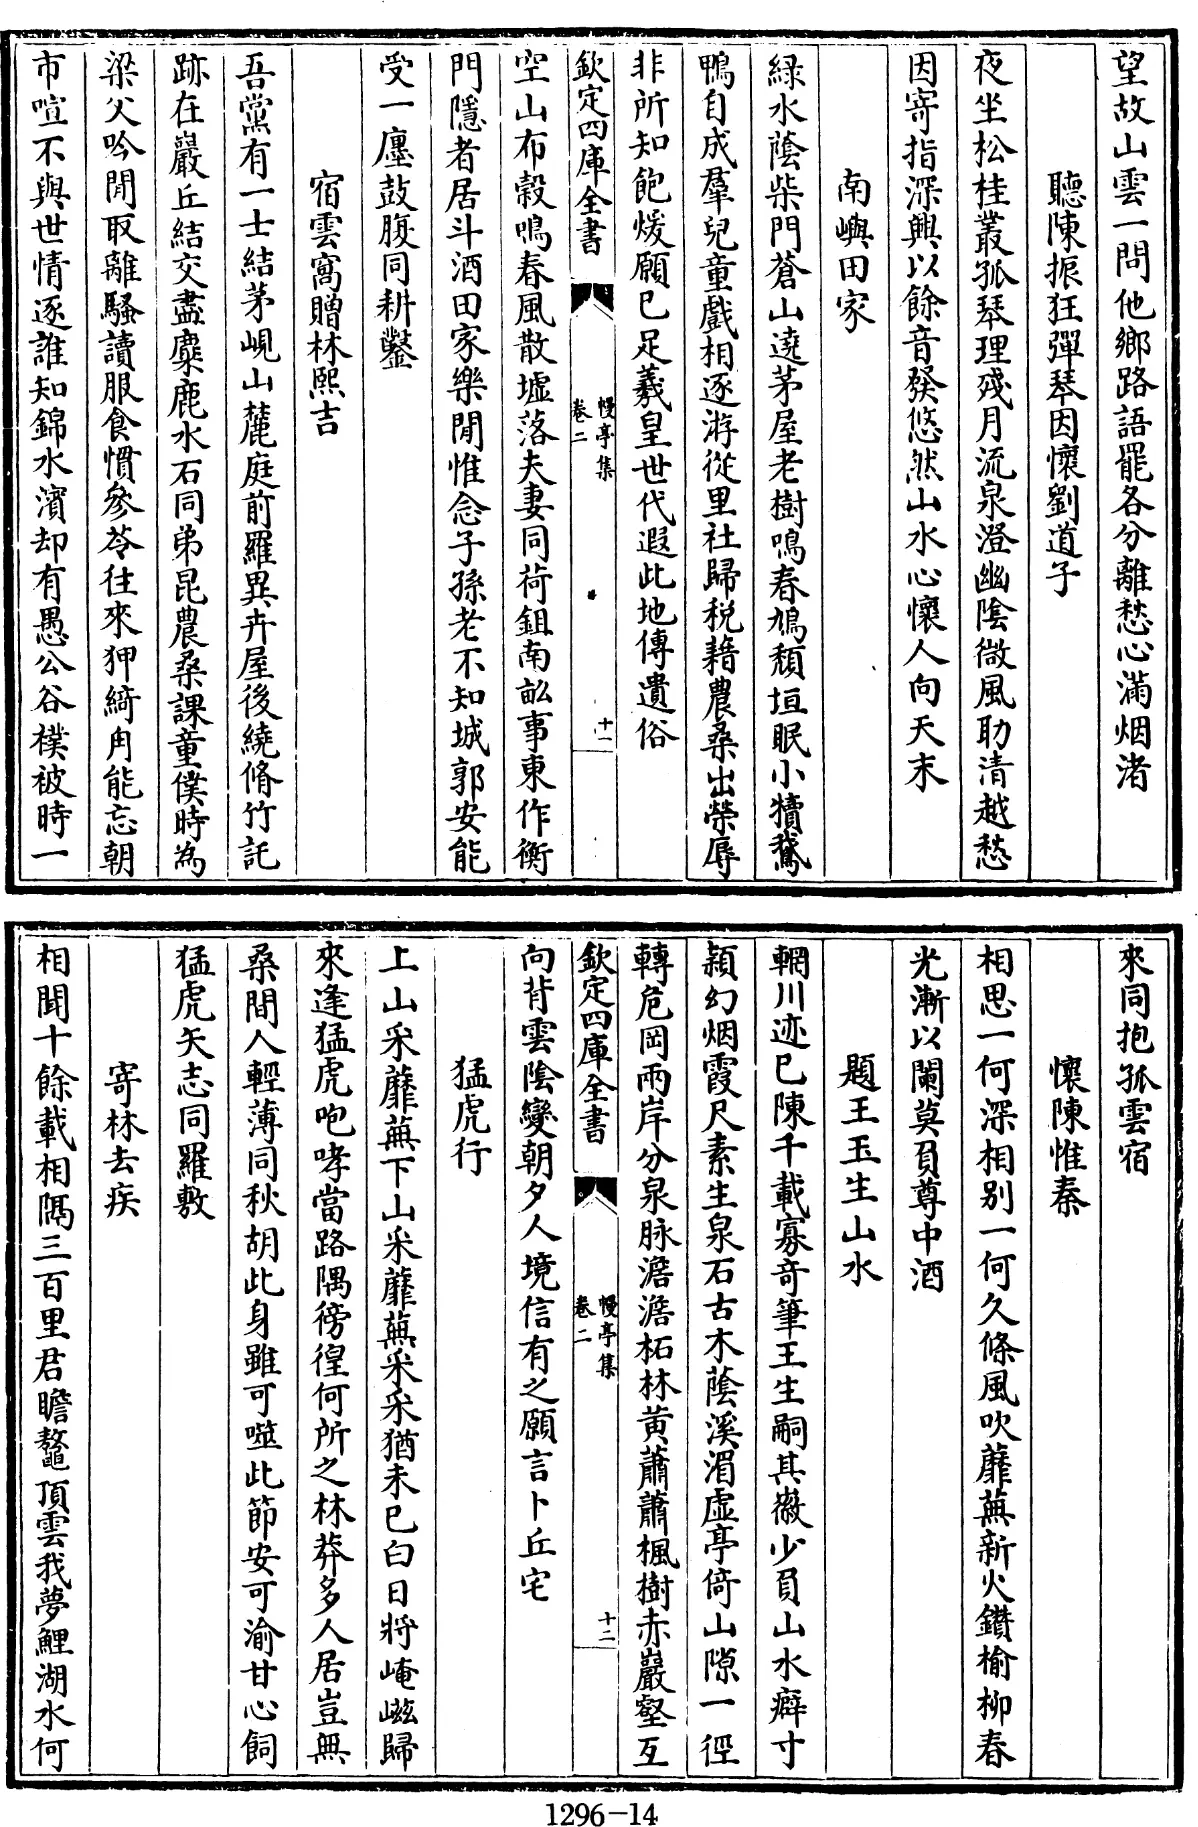 望故山雲一問他鄉路語罷各分離愁心滿烟渚
聽陳振狂彈琴因懷劉道子
夜坐松桂叢孤琴理殘月流泉澄幽陰微風助清越愁
因寄指深興以餘音發悠然山水心懷人向天末
南嶼田家
緑水蔭柴門蒼山遶茅屋老樹鳴春鳩頽垣眠小犢鵞
鴨自成羣兒童戲相逐游從里社歸税藉農桑出榮辱
非所知飽煖願已足羲皇世代遐此地傳遺俗
欽定四庫全書
幔亭集
卷二
十一
空山布穀鳴春風散墟落夫妻同荷鉏南畆事東作衡
門隱者居斗酒田家樂閒惟念子孫老不知城郭安能
受一廛鼓腹同耕鑿
宿雲窩贈林熙吉
吾黨有一士結茅峴山麓庭前羅異卉屋後繞脩竹託
跡在巖丘結交盡麋鹿水石同弟昆農桑課童僕時為
梁父吟閒取離騷讀服食慣參苓往來狎綺甪能忘朝
市喧不與世情逐誰知錦水濱却有愚公谷襆被時一
來同抱孤雲宿
懷陳惟秦
相思一何深相别一何久條風吹蘼蕪新火鑽榆柳春
光漸以闌莫負尊中酒
題王玉生山水
輞川迹已陳千載寡奇筆王生嗣其徽少負山水癖寸
穎幻烟霞尺素生泉石古木蔭溪湄虛亭倚山隙一徑
轉危岡兩岸分泉脉澹澹柘林黄蕭蕭楓樹赤巖壑互
欽定四庫全書
幔亭集
卷二
十二
向背雲陰變朝夕人境信有之願言卜丘宅
猛虎行
上山采蘼蕪下山采蘼蕪采采猶未已白日將崦嵫歸
來逢猛虎咆哮當路隅徬徨何所之林莽多人居豈無
桑間人輕薄同秋胡此身雖可噬此節安可渝甘心飼
猛虎矢志同羅敷
寄林去疾
相聞十餘載相隔三百里君瞻鼇頂雲我夢鯉湖水何
1296-14